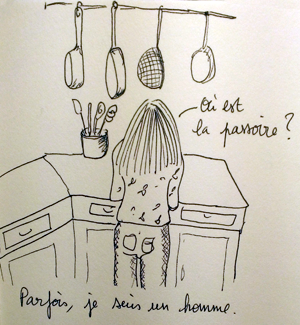 Où est
la passoire ?
Parfois, je suis un homme.